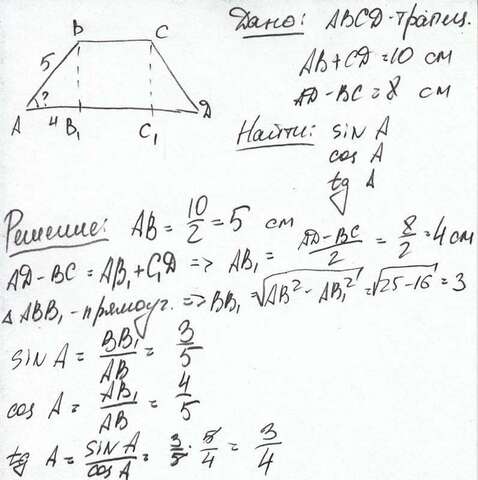 B C
5
?
A 4 B₁ C₁ D
Дано: ABCD-трапец.
AB+CD=10 см
AD-BC=8 см
Найти: sin A
cos A
tg A
Решение: AB = 10/2 = 5 см
AD-BC = AB₁+C₁D => AB₁ = AD-BC/2 = 8/2 = 4 см
△ ABB₁ - прямоуг. => BB₁ = √AB²-AB₁² = √25-16 = 3
sin A = BB₁/AB = 3/5
cos A = AB₁/AB = 4/5
tg A = sin A/cos A = 3/5 · 5/4 = 3/4